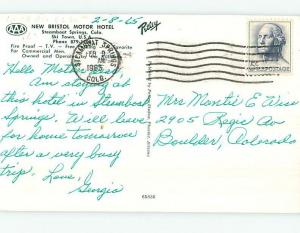 2-8-65
AAA NEW BRISTOL MOTOR HOTEL
Steamboat Springs, Colo.
Ski Town, U.S.
Phone 879
Fire Proof - T.V. - Free
For Commercial Men
Owned and Operated
Petley
STEAMBOAT SPRINGS
FEB 8
1965
COLO.
Hello Mother
Am staying at
this hotel in Steamboat
Springs. We will leave
for home tomorrow
after a very busy
trip. Love,
Georgia
Mrs Montie E Wise
2905 Regis Ave
Boulder, Colorado